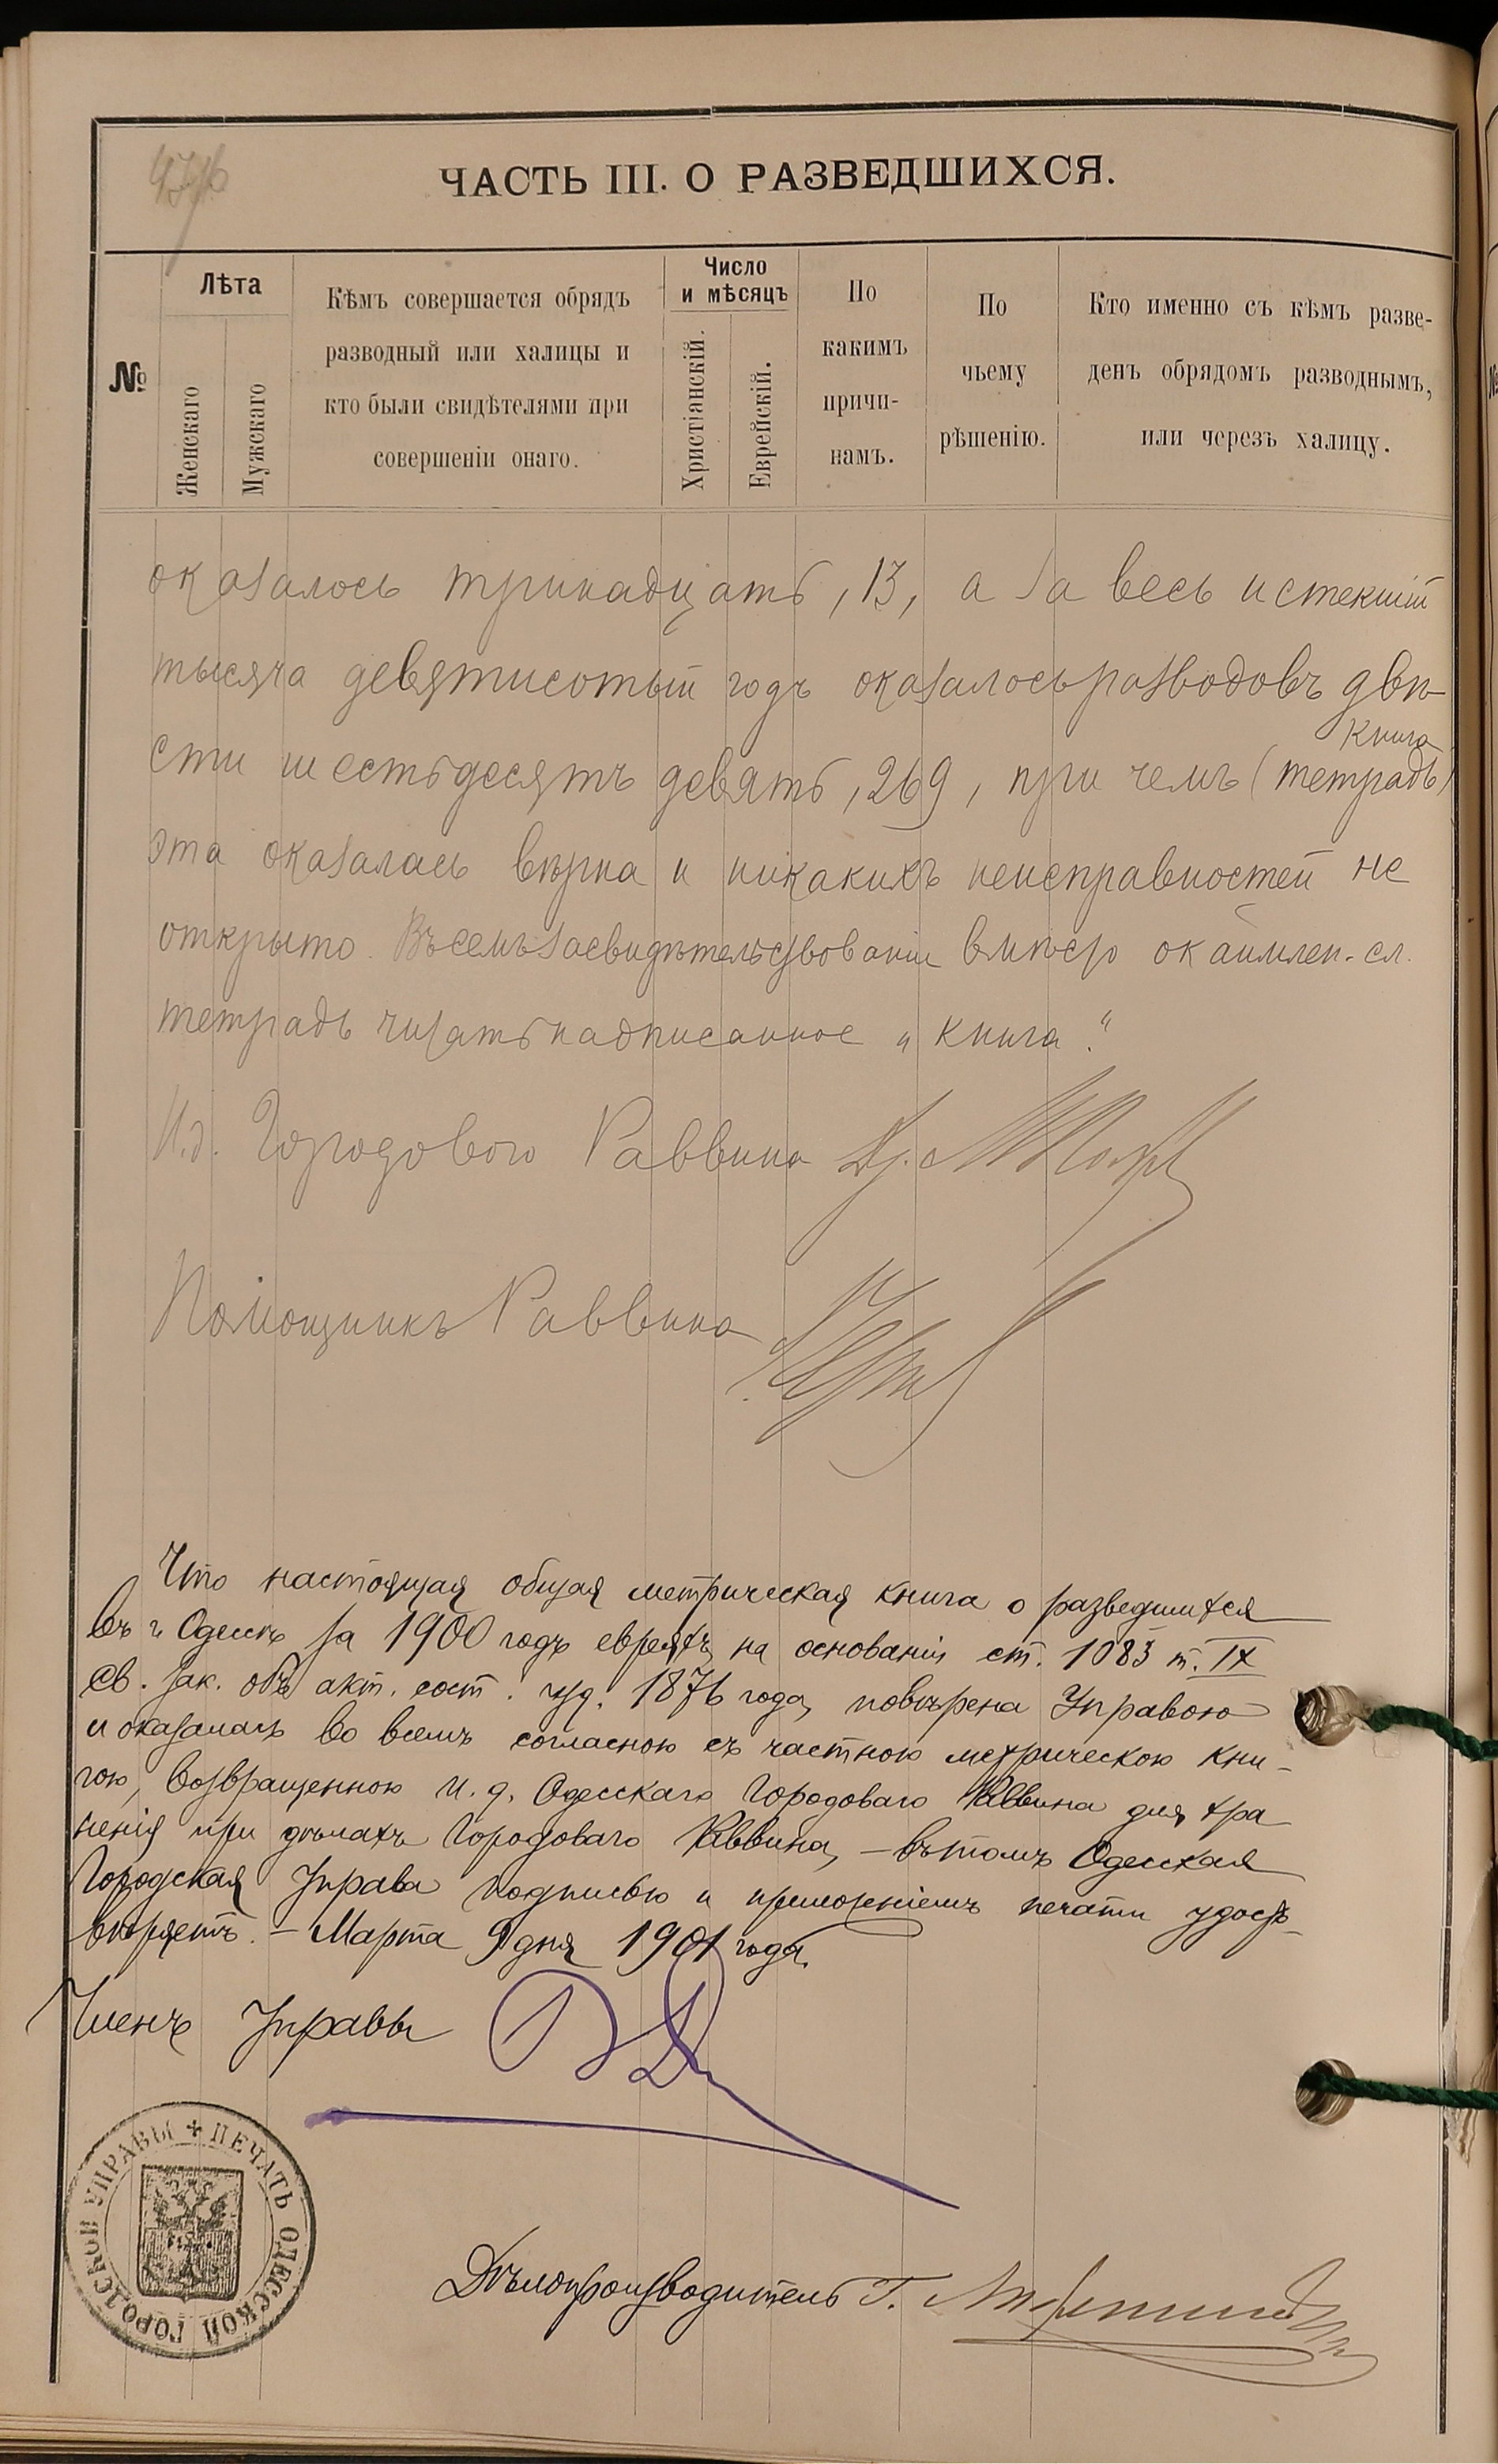 ЧАСТЬ III. О РАЗВЕДШИХСЯ.
№
Лѣта
Женскаго
Мужскаго
Кѣмъ совершается обрядъ
разводный или халицы и
кто были свидѣтелями при
совершеніи онаго.
Число
и мѣсяцъ
Христіанскій.
Еврейскій.
По
какимъ
причи-
намъ.
По
чьему
рѣшенію.
Кто именно съ кѣмъ разве-
денъ обрядомъ разводнымъ,
или черезъ халицу.
оказалось тринадцать, 13, а за весь истекшій
тысяча девятисотый годъ оказалось разводовъ двѣ-
книга
сти шестьдесятъ девять, 269, при чемъ (тетрадь)
эта оказалась вѣрна и никакихъ неисправностей не
открыто. Въ семъ засвидѣтельствованіи вмѣсто окаймлен. сл.
тетрадь читать надписанное „книга“.
И. д. Городового Раввина Др.
Помощникъ Раввина
Что настоящая общая метрическая книга о разведшихся
въ г. Одессѣ за 1900 годъ евреяхъ, на основаніи ст. 1083 т. IX
Св. Зак. объ акт. сост. изд. 1876 года, повѣрена Управою
и оказалась во всемъ согласною съ частною метрическою кни-
гою, возвращенною И. д. Одесскаго Городоваго Раввина для хра
ненія при дѣлахъ Городоваго Раввина, – въ томъ Одесская
Городская Управа подписью и приложеніемъ печати удосто-
вѣряетъ. – Марта 9 дня 1901 года.
Членъ Управы
ПЕЧАТЬ ОДЕССКОЙ ГОРОДСКОЙ УПРАВЫ
Дѣлопроизводитель Г.